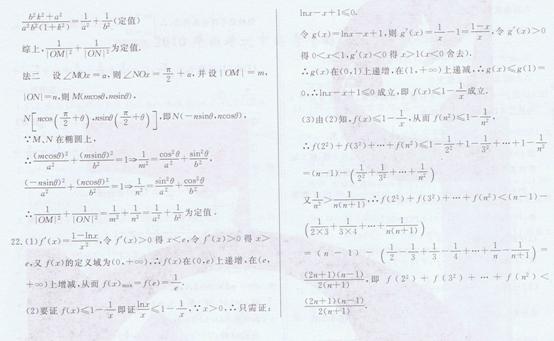 $\frac{b^2k^2+a^2}{a^2b^2(1+k^2)}=\frac{1}{a^2}+\frac{1}{b^2}$.(定值)
综上,$\frac{1}{|OM|^2}+\frac{1}{|ON|^2}$为定值.
法二 设∠MOx=a,则∠NOx=$\frac{\pi}{2}$+a,并设|OM|=m,
|ON|=n,则M(mcosθ,msinθ),
$N\left[n\cos\left(\frac{\pi}{2}+θ\right),n\sin\left(\frac{\pi}{2}+θ\right)\right]$,即N(-nsinθ,ncosθ),
∵M、N在椭圆上,
∴$\frac{(m\cosθ)^2}{a^2}+\frac{(m\sinθ)^2}{b^2}=1⇒\frac{1}{m^2}=\frac{\cos^2θ}{a^2}+\frac{\sin^2θ}{b^2}$,
$\frac{(-n\sinθ)^2}{a^2}+\frac{(n\cosθ)^2}{b^2}=1⇒\frac{1}{n^2}=\frac{\sin^2θ}{a^2}+\frac{\cos^2θ}{b^2}$
∴$\frac{1}{|OM|^2}+\frac{1}{|ON|^2}=\frac{1}{m^2}+\frac{1}{n^2}=\frac{1}{a^2}+\frac{1}{b^2}$为定值.
22.(1)f′(x)=$\frac{1-\ln x}{x^2}$,令f′(x)>0得x<e,令f′(x)>0得x>
e,又f(x)的定义域为(0,+∞),∴f(x)在(0,e)上递增,在(e,
+∞)上增减,从而f(x)$_{max}$=f(e)=$\frac{1}{e}$.
(2)要证f(x)≤1-$\frac{1}{x}$即证$\frac{\ln x}{x}$≤1-$\frac{1}{x}$,∵x>0,∴只需证:
lnx-x+1≤0.
令g(x)=lnx-x+1,则g′(x)=$\frac{1}{x}$-1=$\frac{1-x}{x}$,令g′(x)>0
得0<x<1,g′(x)<0得x>1(x<0舍去).
∴g(x)在(0,1)上递增,在(1,+∞)上递减,∴g(x)≤g(1)=
0,∴lnx-x+1≤0成立,即f(x)≤1-$\frac{1}{x}$成立.
(3)由(2)知,f(x)≤1-$\frac{1}{x}$,从而f(n²)≤1-$\frac{1}{n^2}$,
∴f(2²)+f(3²)+…+f(n²)≤1-$\frac{1}{2^2}$+1-$\frac{1}{3^2}$+…+1-$\frac{1}{n^2}$
=(n-1)-$\left(\frac{1}{2^2}+\frac{1}{3^2}+…+\frac{1}{n^2}\right)$
又$\frac{1}{n^2}>\frac{1}{n(n+1)}$,∴f(2²)+f(3²)+…+f(n²)<(n-1)-
$\left(\frac{1}{2×3}+\frac{1}{3×4}+…+\frac{1}{n(n+1)}\right)$
=(n-1)-$\left(\frac{1}{2}-\frac{1}{3}+\frac{1}{3}-\frac{1}{4}+…+\frac{1}{n}-\frac{1}{n+1}\right)$=
$\frac{(2n+1)(n-1)}{2(n+1)}$,即f(2²)+f(3²)+…+f(n²)<
$\frac{(2n+1)(n-1)}{2(n+1)}$.